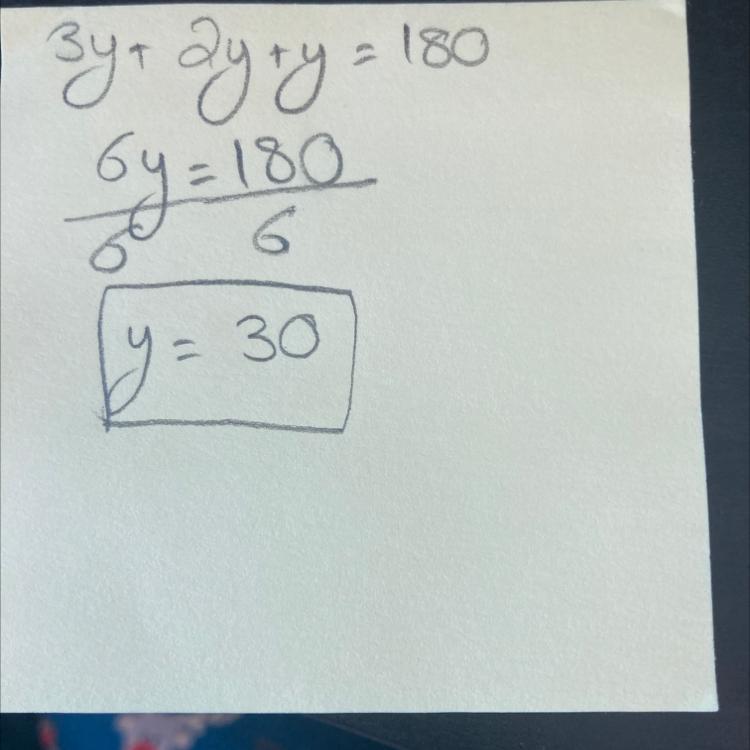 3y + 2y + y = 180
6y = 180
6 6
y = 30